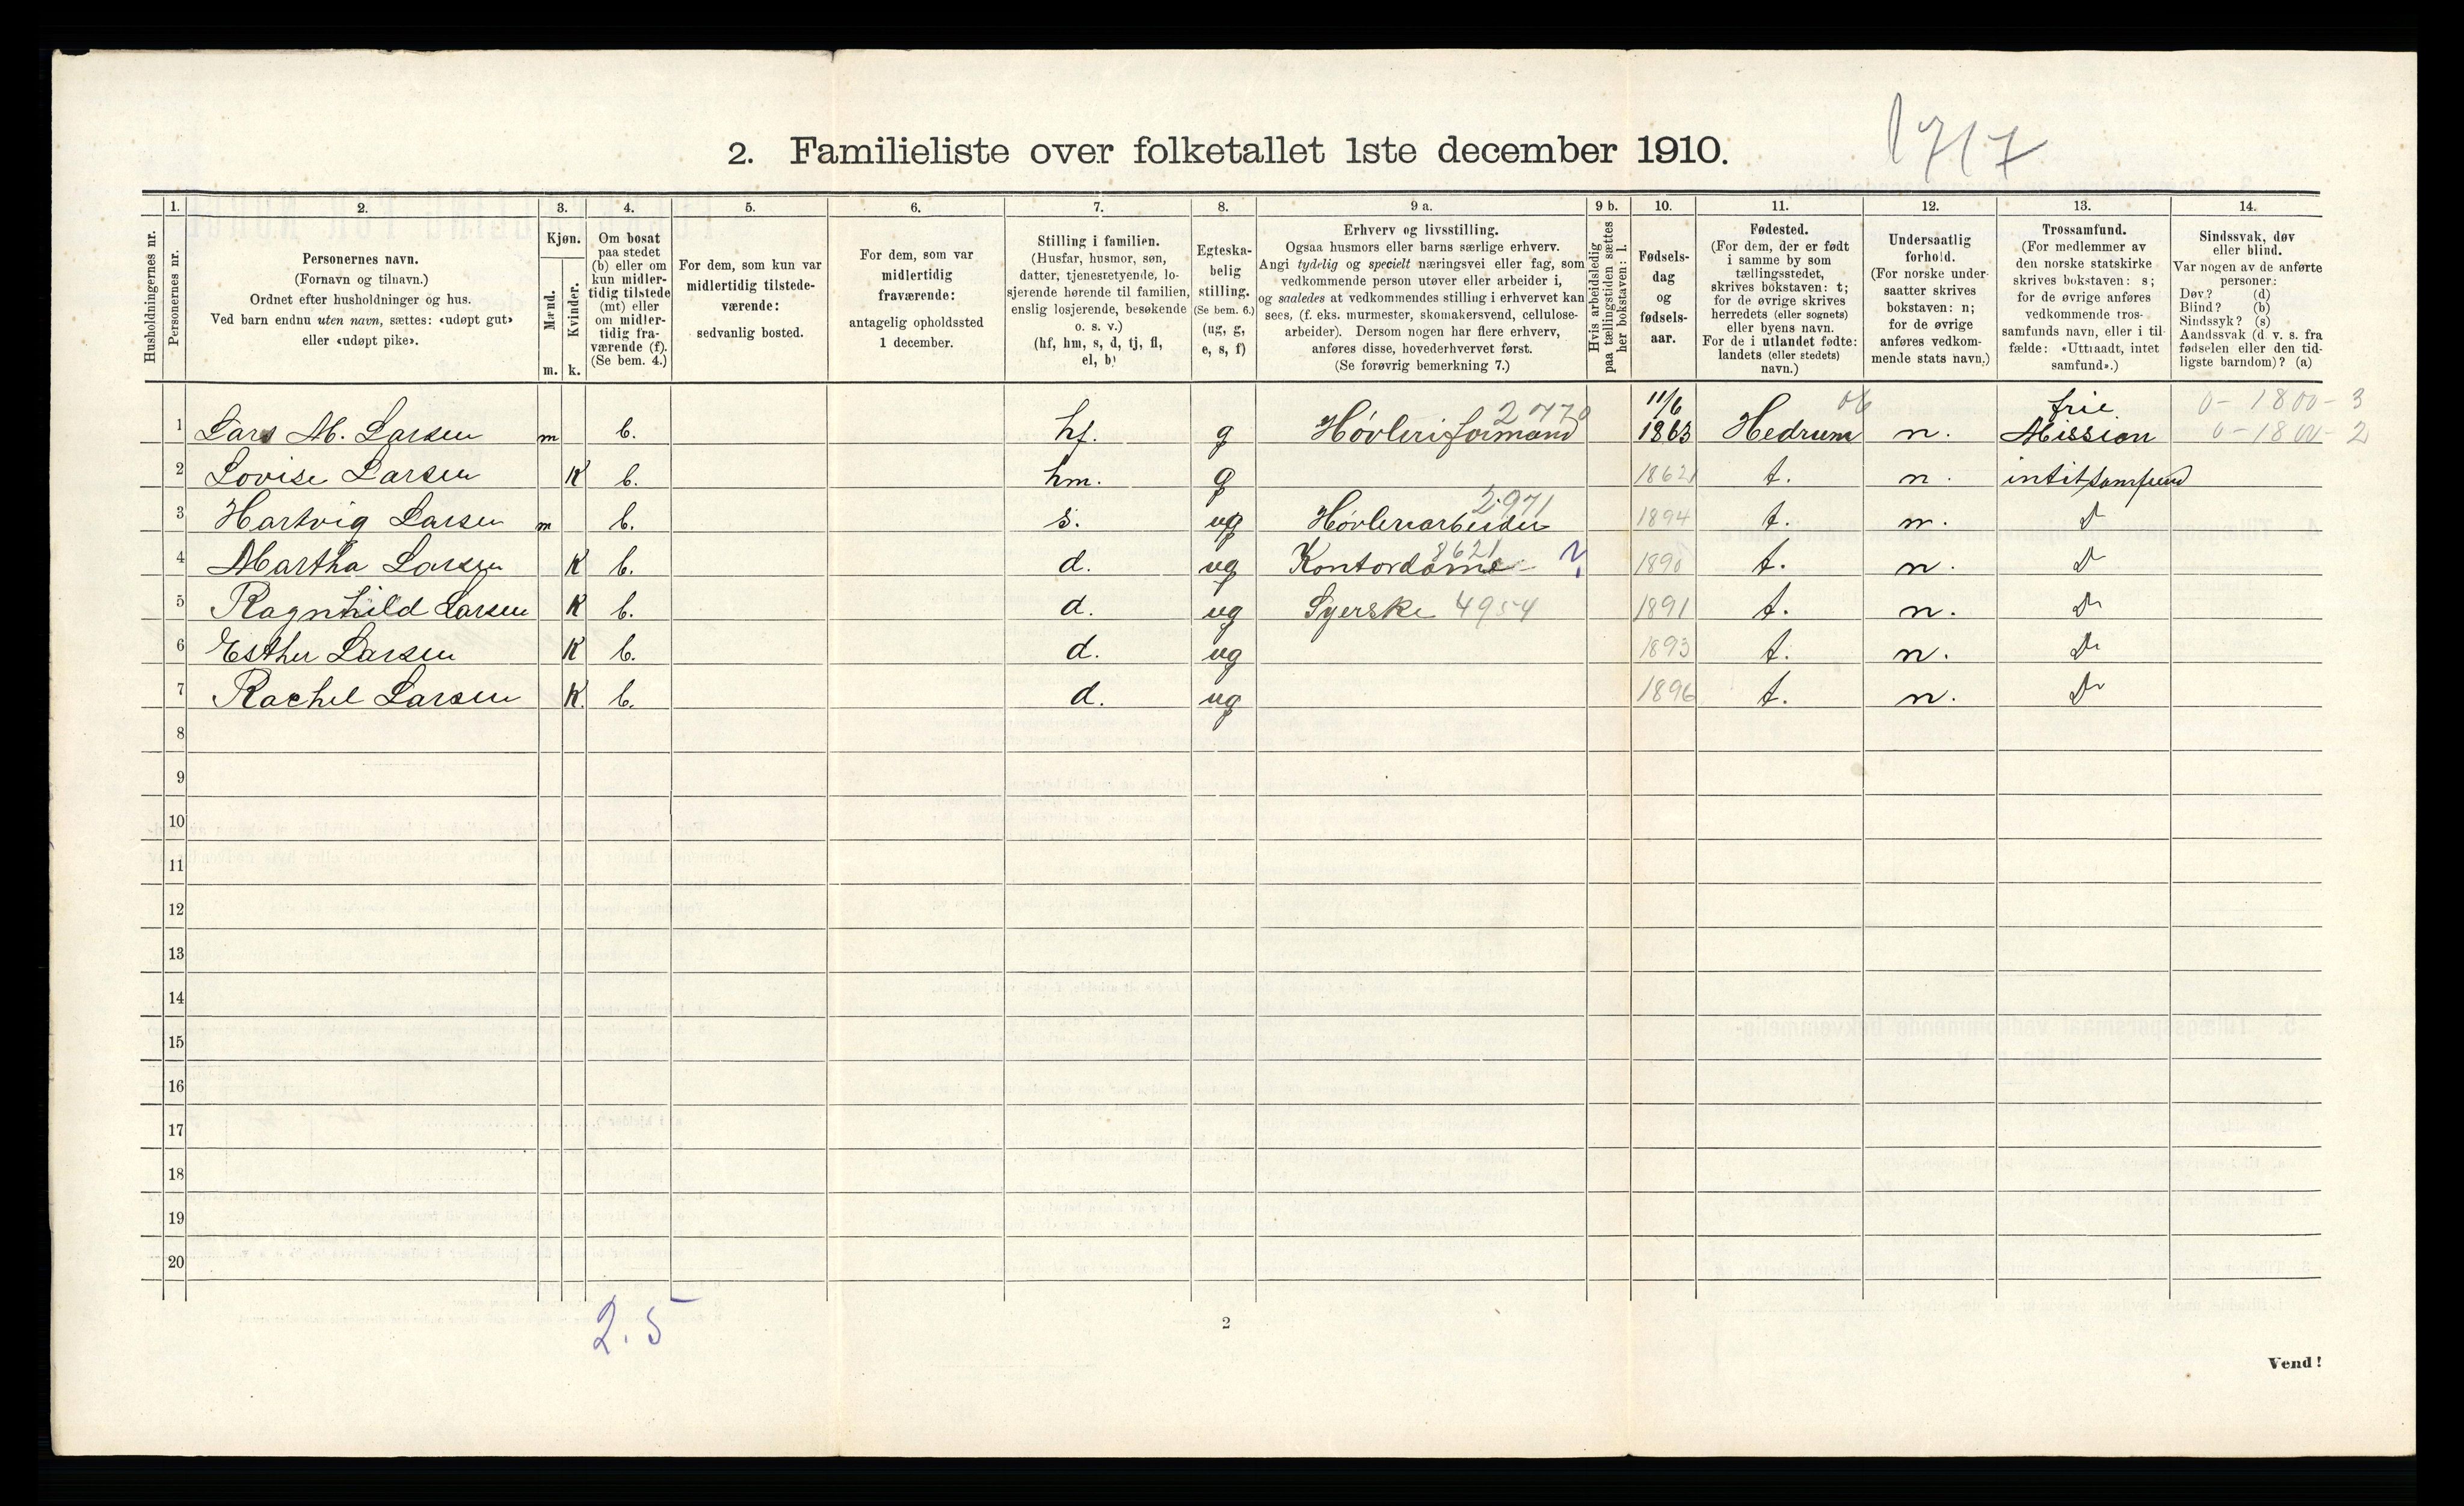 1717
2. Familieliste over folketallet 1ste december 1910.
1. 2. 3. 4. 5. 6. 7. 8. 9 a. 9 b. 10. 11. 12. 13. 14.
Husholdningernes nr.
Personernes nr.
Personernes navn.
(Fornavn og tilnavn.)
Ordnet efter husholdninger og hus.
Ved barn endnu uten navn, sættes: «udøpt gut»
eller «udøpt pike».
Kjøn.
Mænd.
Kvinder.
m. k.
Om bosat
paa stedet
(b) eller om
kun midler-
tidig tilstede
(mt) eller
om midler-
tidig fra-
værende (f).
(Se bem. 4.)
For dem, som kun var
midlertidig tilstede-
værende:
sedvanlig bosted.
For dem, som var
midlertidig
fraværende:
antagelig opholdssted
1 december.
Stilling i familien.
(Husfar, husmor, søn,
datter, tjenestetyende, lo-
sjerende hørende til familien,
enslig losjerende, besøkende
o. s. v.)
(hf, hm, s, d, tj, fl,
el, b)
Egteska-
belig
stilling.
(Se bem. 6.)
(ug, g,
e, s, f)
Erhverv og livsstilling.
Ogsaa husmors eller barns særlige erhverv.
Angi tydelig og specielt næringsvei eller fag, som
vedkommende person utøver eller arbeider i,
og saaledes at vedkommendes stilling i erhvervet kan
sees, (f. eks. murmester, skomakersvend, cellulose-
arbeider). Dersom nogen har flere erhverv,
anføres disse, hovederhvervet først.
(Se forøvrig bemerkning 7.)
Hvis arbeidsledig
paa tællingstiden sættes
her bokstaven: l.
Fødsels-
dag
og
fødsels-
aar.
Fødested.
(For dem, der er født
i samme by som
tællingsstedet,
skrives bokstaven: t;
for de øvrige skrives
herredets (eller sognets)
eller byens navn.
For de i utlandet fødte:
landets (eller stedets)
navn.)
Undersaatlig
forhold.
(For norske under-
saatter skrives
bokstaven: n;
for de øvrige
anføres vedkom-
mende stats navn.)
Trossamfund.
(For medlemmer av
den norske statskirke
skrives bokstaven: s;
for de øvrige anføres
vedkommende tros-
samfunds navn, eller i til-
fælde: «Uttraadt, intet
samfund».)
Sindssvak, døv
eller blind.
Var nogen av de anførte
personer:
Døv? (d)
Blind? (b)
Sindssyk? (s)
Aandssvak (d. v. s. fra
fødselen eller den tid-
ligste barndom)? (a)
2770 11/6 06 frie 0-1800-3
1 Lars M. Larsen m b. hf. g Høvleriformand 1863 Hedrum n. Mission 0-1800-2
2 Lovise Larsen K b. hm. g 1862 t. n. intit samfund
2971
3 Hartvig Larsen m b. s. ug Høvleriarbeider 1894 t. n. D
8621
4 Martha Larsen K b. d. ug Kontordame ? 1890 t. n. D
5 Ragnhild Larsen K b. d. ug Syerske 4954 1891 t. n. Do
6 Esther Larsen K b. d. ug 1893 t. n. Do
7 Rachel Larsen K. b. d. ug 1896 t. n. Do
8
9
10
11
12
13
14
15
16
17
18
19
20
2.5
2
Vend!